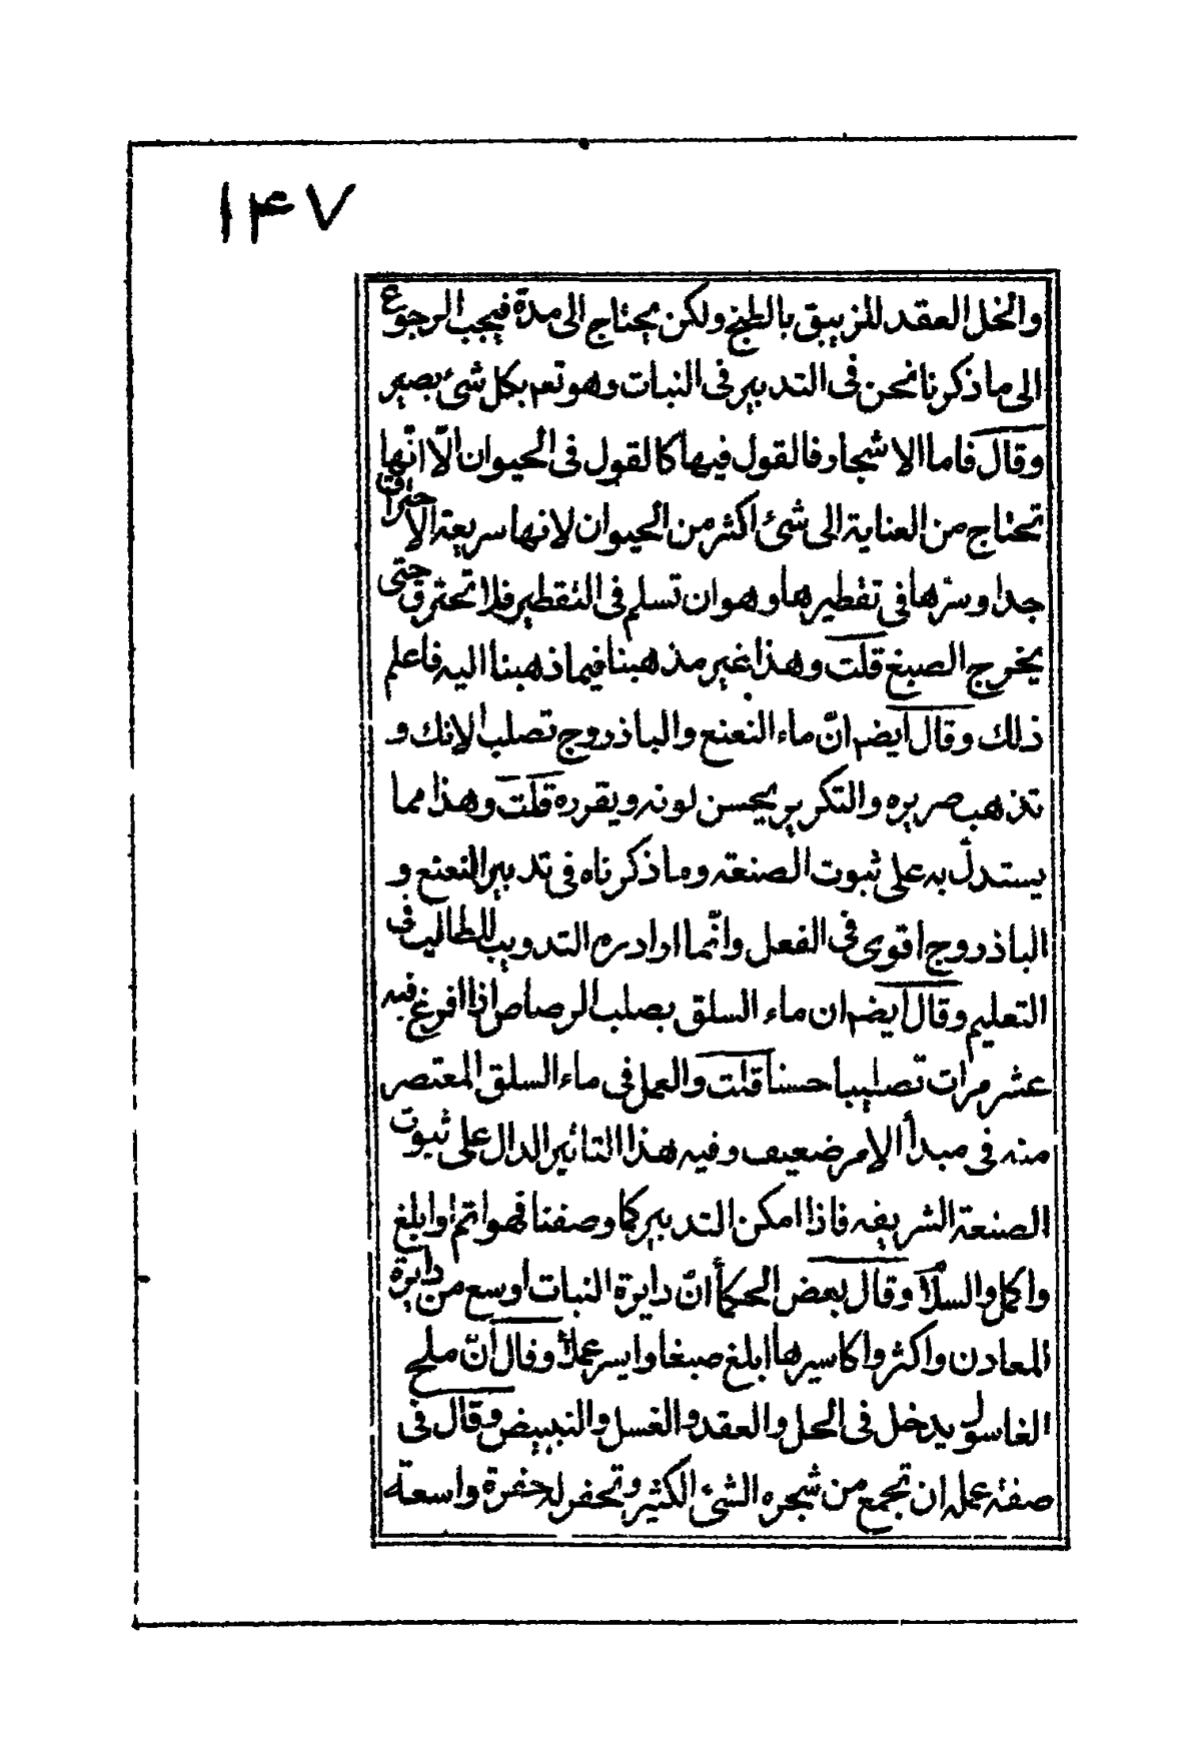 ۱۴۷
والخل العقد للزيبق بالطبخ ولكن يحتاج الى مدة فيجب الرجوع
الى ما ذكرنا نحن فى التدبير فى النبات وهو تعم بكل شئ بصير
وقال فاما الاشجار فالقول فيها كالقول فى الحيوان الّا انّها
تحتاج من العناية الى شئ اكثر من الحيوان لانها سريعة الاحتراق
جدا وسرّها فى تقطيرها وهو ان تسلم فى التقطير فلا تحترق حتى
يخرج الصبغ قلت وهذا غير مذهبنا فيما ذهبنا اليه فاعلم
ذلك وقال ايضم انّ ماء النعنع والباذروج تصلب الانك و
تذهب صريره والتكرير يحسن لونه ويقرره قلت وهذا مما
يستدلّ به على ثبوت الصنعة وما ذكرناه فى تدبير النعنع و
الباذروج اقوى فى الفعل وانّما اراد ره التدويب للطالب فى
التعليم وقال ايضم ان ماء السلق يصلب الرصاص اذا افرغ فيه
عشر مرات تصليبا حسنا قلت والعمل فى ماء السلق المعتصر
منه فى مبدأ الامر ضعيف وفيه هذا التاثير الدال على ثبوت
الصنعة الشريفه فاذا امكن التدبير كما وصفنا فهو اتم وابلغ
واكمل والسلا وقال بعض الحكمأ انّ دايرة النبات اوسع من دايرة
المعادن واكثر واكاسيرها ابلغ صبغا وايسر عملاً وقال انّ ملح
الغاسول يدخل فى الحل والعقد والغسل والتبييض وقال فى
صفة عمله ان تجمع من شجره الشئ الكثير وتحفر له حفرة واسعة